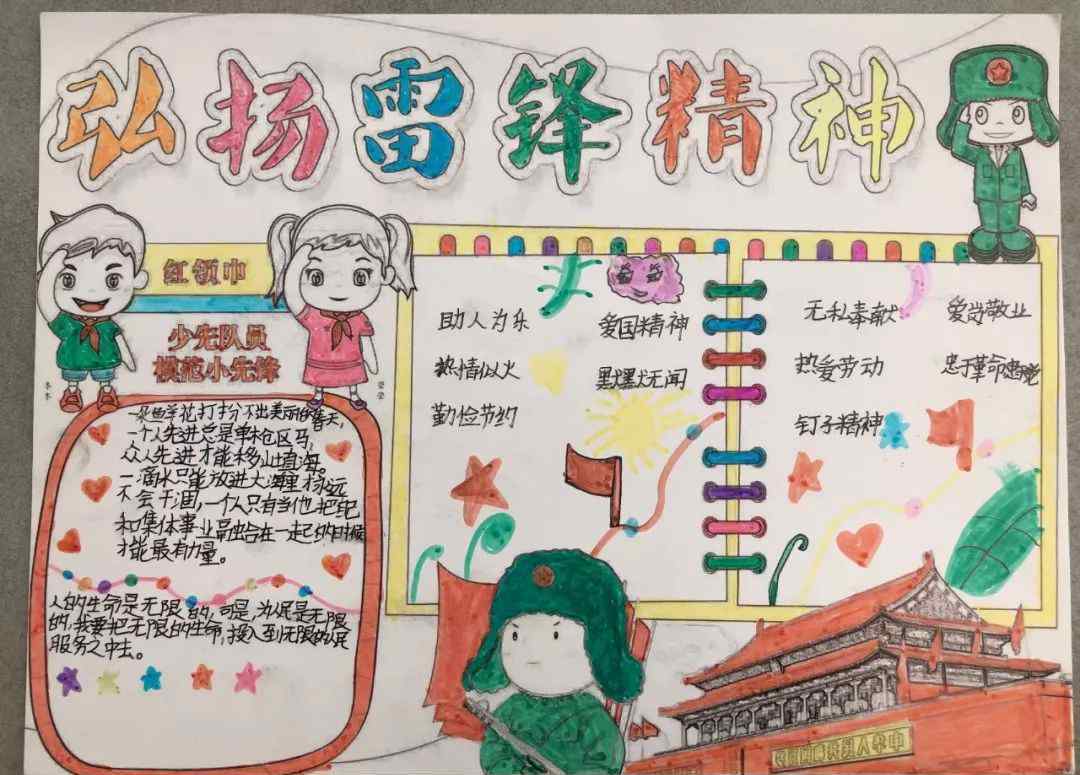 弘扬雷锋精神
红领巾
少先队员
模范小先锋
一朵鲜花打扮不出美丽的春天，
一个人先进总是单枪匹马，
众人先进才能移山填海。
一滴水只能放进大海里永远
不会干涸，一个人只有当他把纪
和集体事业融合在一起的时候
才能最有力量。
人的生命是无限的，可是，为人民是无限
的，我要把无限的生命，投入到无限的人民
服务之中去。
助人为乐 爱国精神
热情似火 默默无闻
勤俭节约
无私奉献 爱岗敬业
热爱劳动 忠于革命忠于党
钉子精神